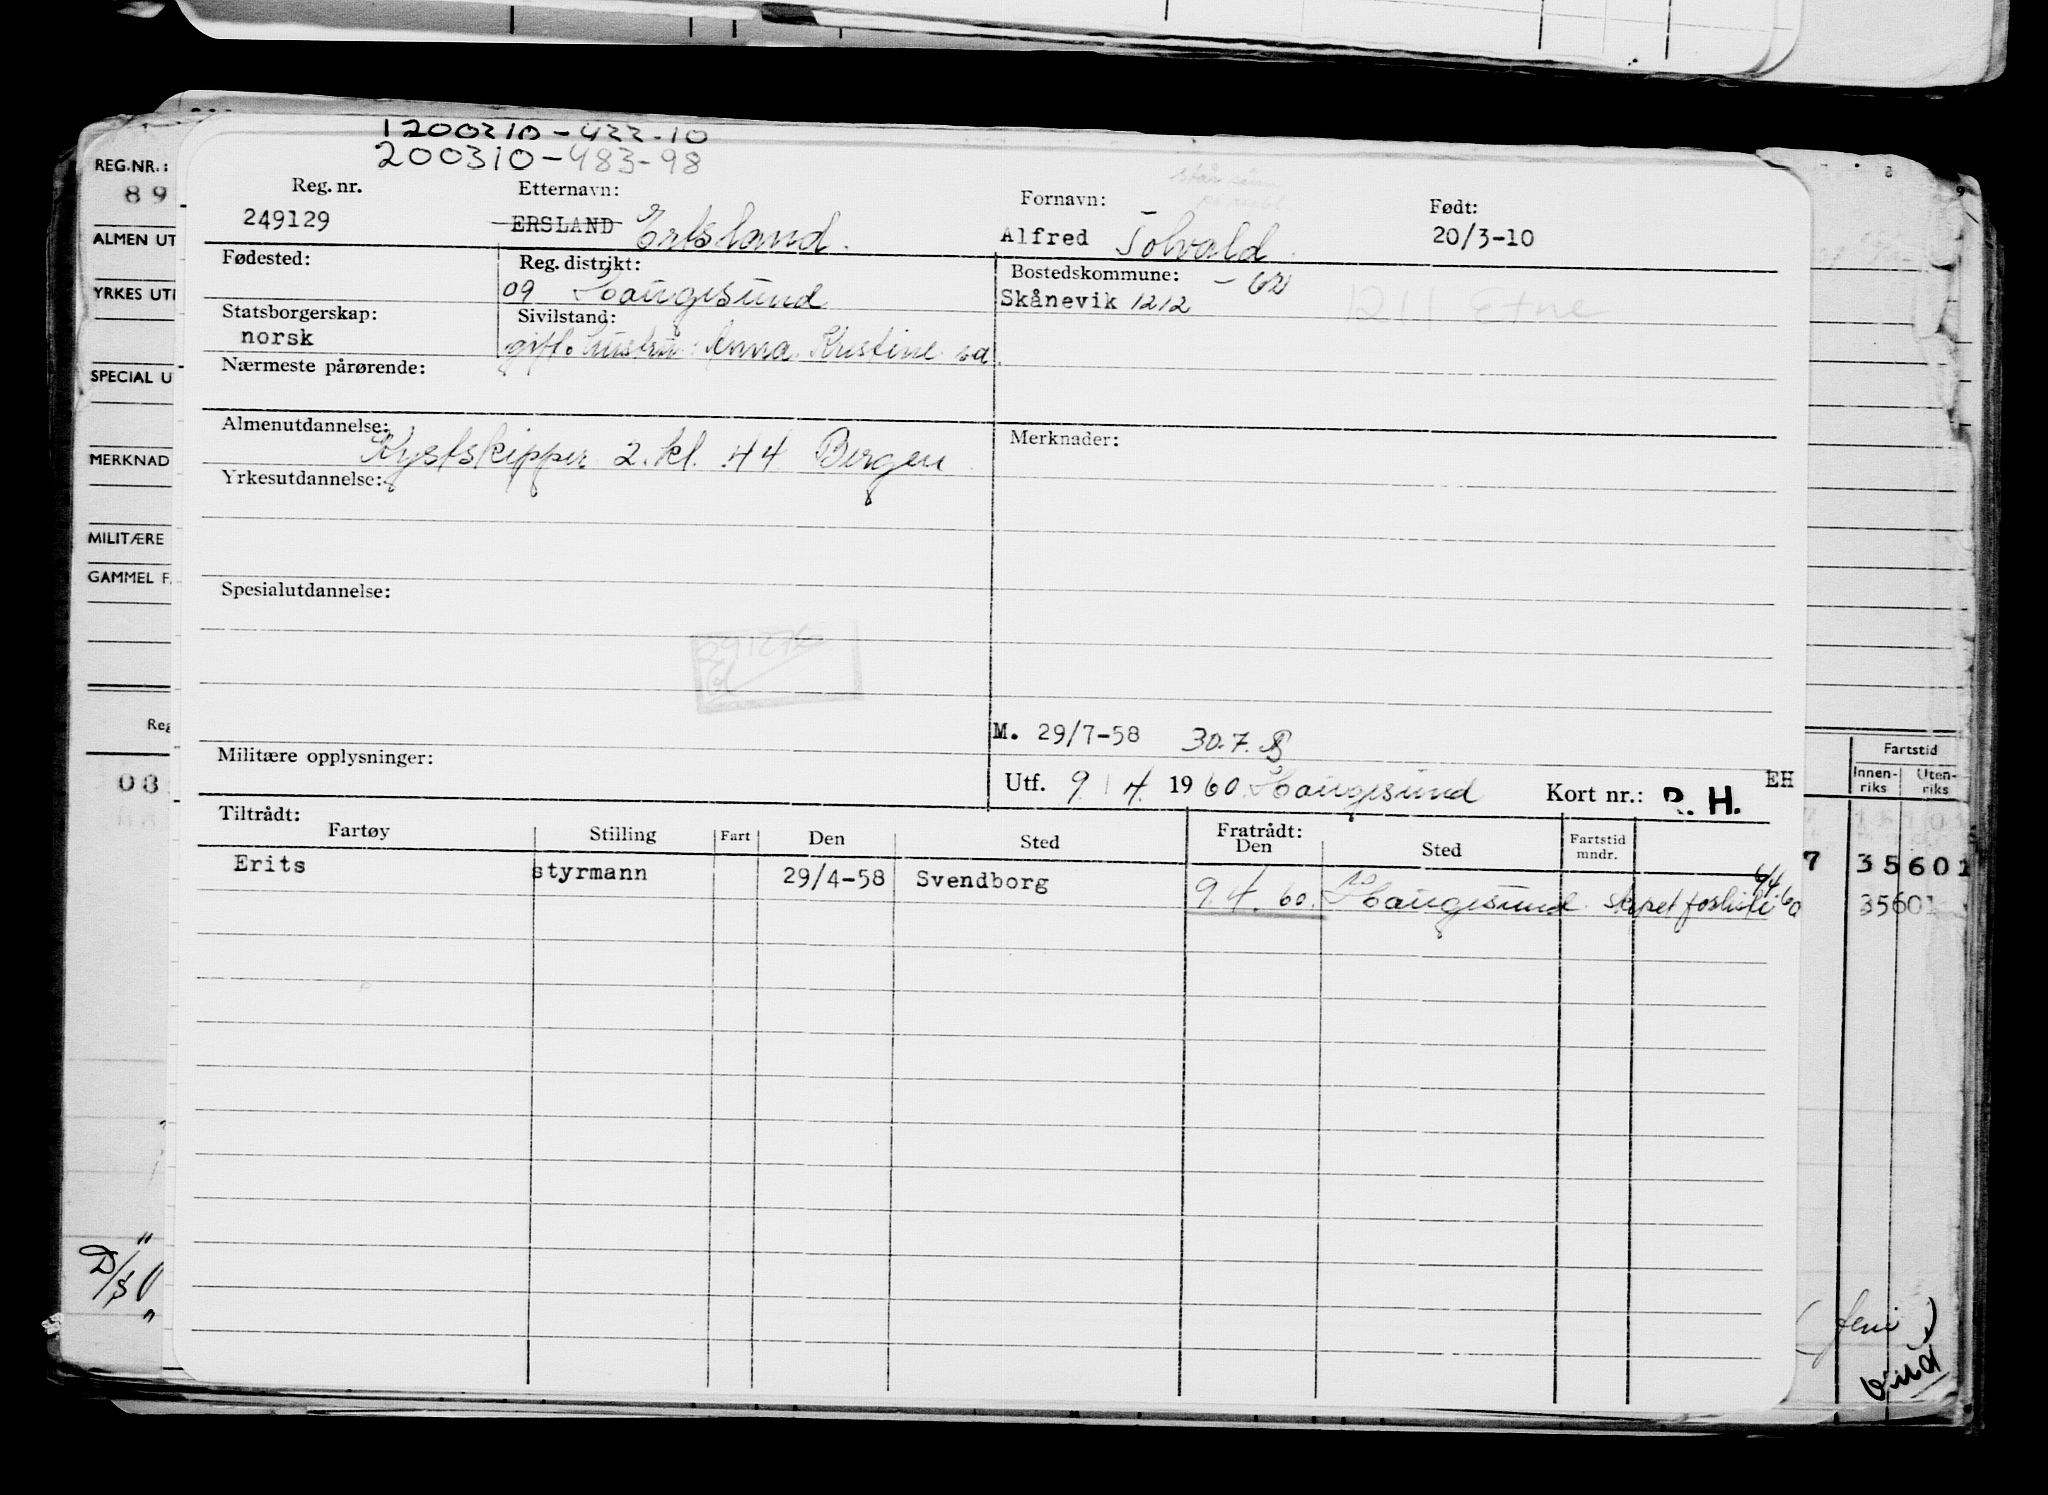 1200310-433-10
200310-483-98
Reg. nr. Etternavn: Fornavn: Født:
249129 ERSLAND Ertsland. Alfred Tolvald 20/3-10
Fødested: Reg. distrikt: Bostedskommune:
09 Haugesund Skånevik 1212 1211 Etne
Statsborgerskap: Sivilstand:
norsk gift. hustru: Anna Kristine sa.
Nærmeste pårørende:
Almenutdannelse: Merknader:
Kystskipper 2.kl. 44 Bergen
Yrkesutdannelse:
Spesialutdannelse:
M. 29/7-58 30.7.
Militære opplysninger:
Utf. 9 / 4. 1960. Haugesund Kort nr.: R. H. EH
Tiltrådt: Fratrådt:
Fartøy Stilling Fart Den Sted Den Sted Fartstid mndr.
Erits styrmann 29/4-58 Svendborg 9.4.60. Haugesund. skipet forliste 6/4.60
REG.NR.:
89
ALMEN UT
YRKES UTI
SPECIAL U
MERKNAD
MILITÆRE
GAMMEL F.
Reg
03
"
D/S
"
Fartstid
Innen-riks Uten-riks
7 35601
35601